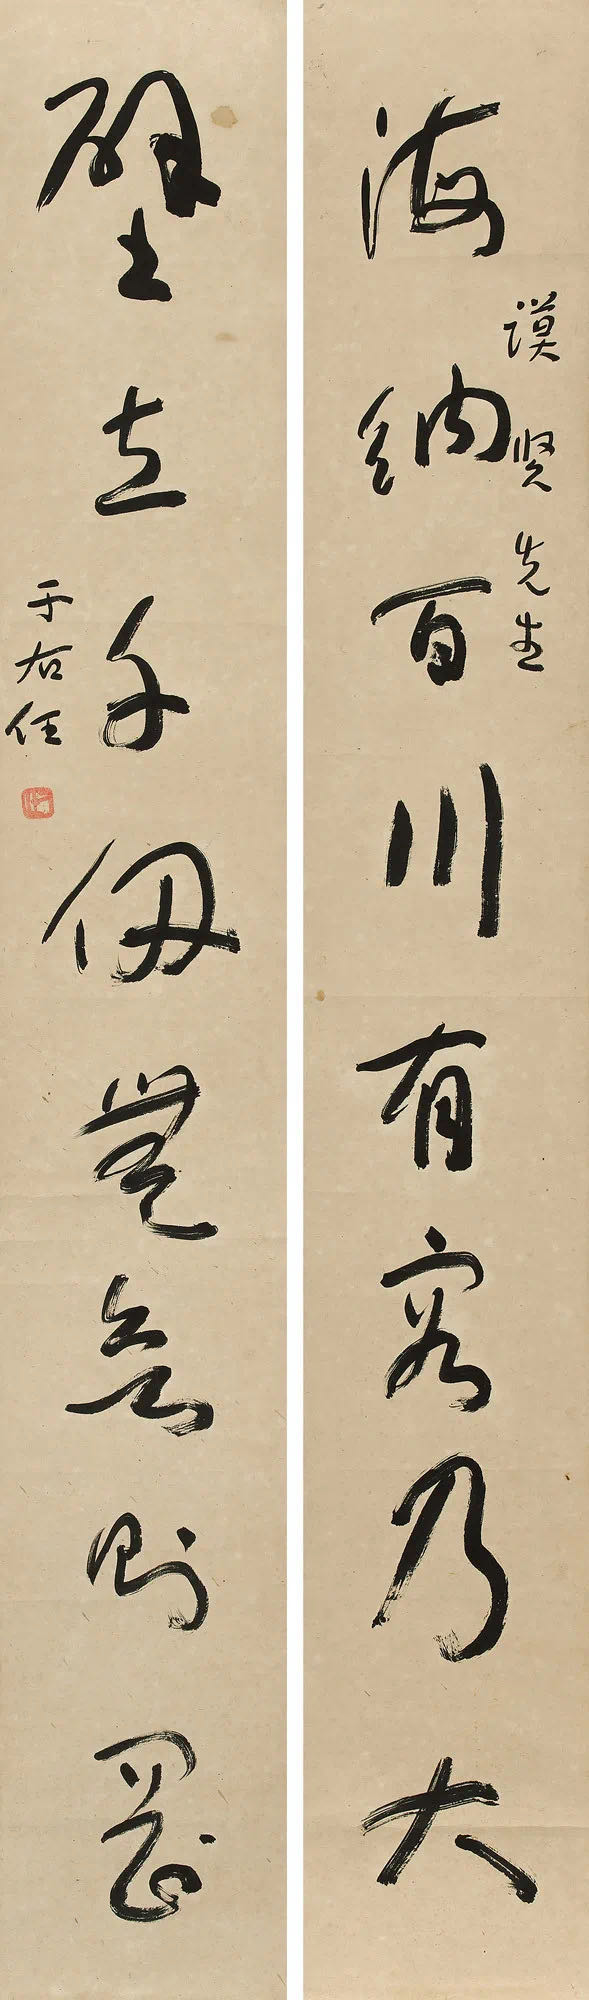 海納百川有容乃大
謨賢先生
壁立千仞無欲則剛
于右任